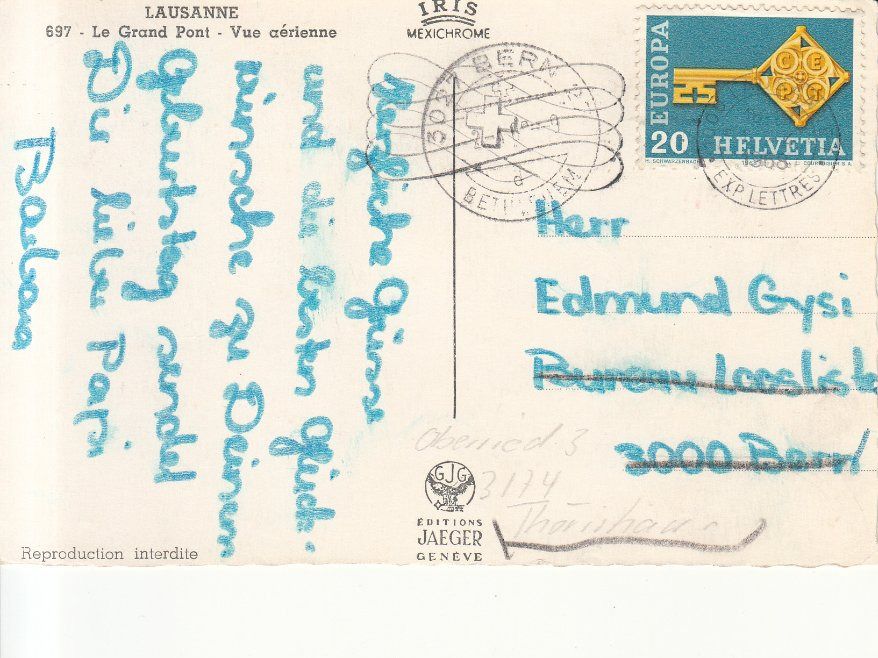 LAUSANNE
697 - Le Grand Pont - Vue aérienne
IRIS
MEXICHROME
3027 BERN
BETHLEHEM
EUROPA
CEPT
20 HELVETIA
H. SCHWARZENBACH
COURVOISIER S.A.
1968
EXP LETTRES
Herzliche Grüsse
und die besten Glück-
wünsche zu Deinem
Geburtstag sendet
Dir lieber Papi
Barbara
Herr
Edmund Gysi
Bureau Looslist
3000 Bern
Oberried. 3
3174
Thörishaus
GJG
ÉDITIONS
JAEGER
GENÈVE
Reproduction interdite